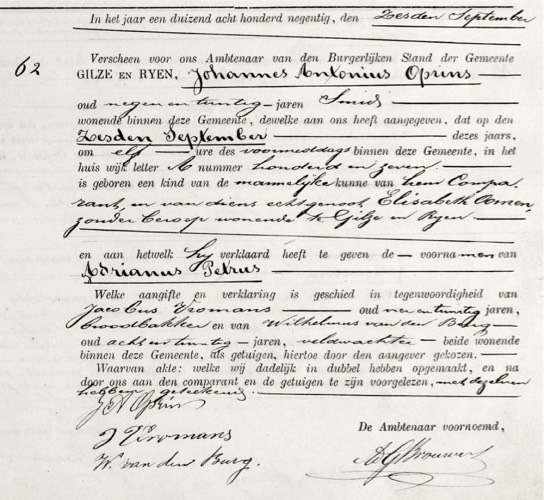 In het jaar een duizend acht honderd negentig, den Zesden September
62
Verscheen voor ons Ambtenaar van den Burgerlijken Stand der Gemeente
GILZE EN RYEN, Johannes Antonius Oprins
oud negen en twintig jaren Smid
wonende binnen deze Gemeente, dewelke aan ons heeft aangegeven, dat op den
Zesden September dezes jaars,
om elf ure des voormiddags binnen deze Gemeente, in het
huis wijk letter A nummer honderd en zeven
is geboren een kind van de mannelijke kunne van hem Compa-
rant, en van diens echtgenoot, Elisabeth Oomen,
zonder beroep wonende te Gilze en Ryen
en aan hetwelk hy verklaard heeft te geven de voornamen van
Adrianus Petrus
Welke aangifte en verklaring is geschied in tegenwoordigheid van
Jacobus Vromans oud vier en twintig jaren,
broodbakker en van Wilhelmus van den Burg
oud acht en twintig jaren, veldwachter beide wonende
binnen deze Gemeente, als getuigen, hiertoe door den aangever gekozen.
Waarvan akte: welke wij dadelijk in dubbel hebben opgemaakt, en na
door ons aan den comparant en de getuigen te zijn voorgelezen, met dezelven
hebben geteekend.
J A Oprins
J Vromans
W. van den Burg.
De Ambtenaar voornoemd,
Brouwers